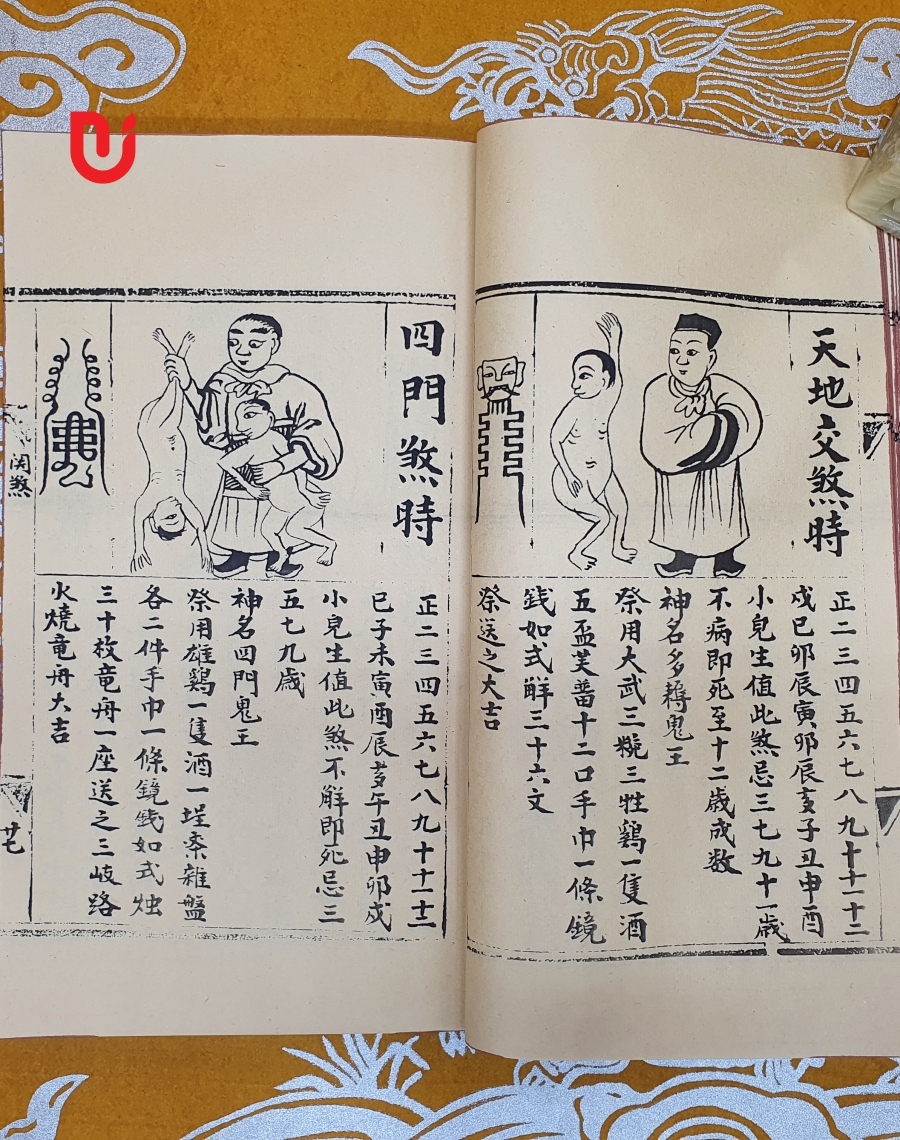 天地交煞時
正二三四五六七八九十十一十二
戌巳卯辰寅卯辰亥子丑申酉
小兒生值此煞忌三七九十一歲
不病即死至十二歲成数
神名多耨鬼王
祭用大武三椀三牲鷄一隻酒
五盃芙蕾十二口手巾一條鏡
錢如式觧三十六文
祭送之大吉
四門煞時
正二三四五六七八九十十一十二
巳子未寅酉辰亥午丑申卯戌
小兒生值此煞不觧即死忌三
五七九歲
神名四門鬼王
祭用雄鷄一隻酒一埕柰雜盤
各二件手巾一條鏡錢如式烛
三十枚竜舟一座送之三岐路
火燒竜舟大吉
関煞
廿七